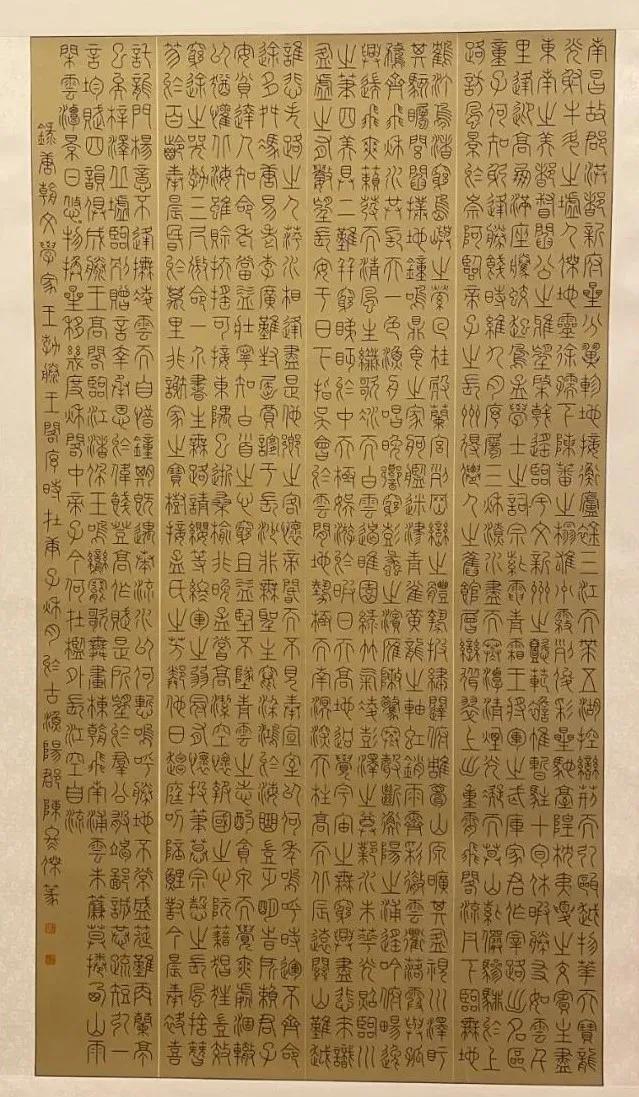 南昌故郡洪都新府星分翼軫地接衡廬襟三江而帶五湖控蠻荊而引甌越物華天寶龍
光射牛斗之墟人傑地靈徐孺下陳蕃之榻雄州霧列俊彩星馳臺隍枕夷夏之交賓主盡
東南之美都督閻公之雅望棨戟遙臨宇文新州之懿範襜帷暫駐十旬休暇勝友如雲千
里逢迎高朋滿座騰蛟起鳳孟學士之詞宗紫電青霜王將軍之武庫家君作宰路出名區
童子何知躬逢勝餞時維九月序屬三秋潦水盡而寒潭清煙光凝而暮山紫儼驂騑於上
路訪風景於崇阿臨帝子之長洲得僊人之舊館層巒聳翠上出重霄飛閣流丹下臨無地
鶴汀鳧渚窮島嶼之縈回桂殿蘭宮列岡巒之體勢披繡闥俯雕甍山原曠其盈視川澤盱
其駭矚閭閻撲地鐘鳴鼎食之家舸艦迷津青雀黃龍之軸虹銷雨霽彩徹雲衢落霞與孤
鶩齊飛秋水共長天一色漁舟唱晚響窮彭蠡之濱雁陣驚寒聲斷衡陽之浦遙吟俯暢逸
興遄飛爽籟發而清風生纖歌凝而白雲遏睢園綠竹氣凌彭澤之樽鄴水朱華光照臨川
之筆四美具二難并窮睇眄於中天極娛遊於暇日天高地迥覺宇宙之無窮興盡悲來識
盈虛之有數望長安于日下指吳會於雲間地勢極而南溟深天柱高而北辰遠關山難越
誰悲失路之人萍水相逢盡是他鄉之客懷帝閽而不見奉宣室以何年嗚呼時運不齊命
途多舛馮唐易老李廣難封屈賈誼于長沙非無聖主竄梁鴻於海曲豈乏明時所賴君子
安貧達人知命老當益壯寧知白首之心窮且益堅不墜青雲之志酌貪泉而覺爽處涸轍
以猶懽北海雖賒扶搖可接東隅已逝桑榆非晚孟嘗高潔空懷報國之心阮藉猖狂豈效
窮途之哭勃三尺微命一介書生無路請纓等終軍之弱冠有懷投筆慕宗愨之長風捨簪
笏於百齡奉晨昏於萬里非謝家之寶樹接孟氏之芳鄰他日趨庭叨陪鯉對今晨奉袂喜
託龍門楊意不逢撫凌雲而自惜鐘期既遇奏流水以何慚嗚呼勝地不常盛筵難再蘭亭
已矣梓澤丘墟臨別贈言幸承恩於偉餞登高作賦是所望於群公敢竭鄙誠恭疏短引一
言均賦四韻俱成滕王高閣臨江渚佩玉鳴鸞罷歌舞畫棟朝飛南浦雲朱簾暮捲西山雨
閑雲潭景日悠物換星移幾度秋閣中帝子今何在檻外長江空自流
錄唐朝文學家王勃滕王閣序時在庚子秋月於古漁陽郡陳傑篆